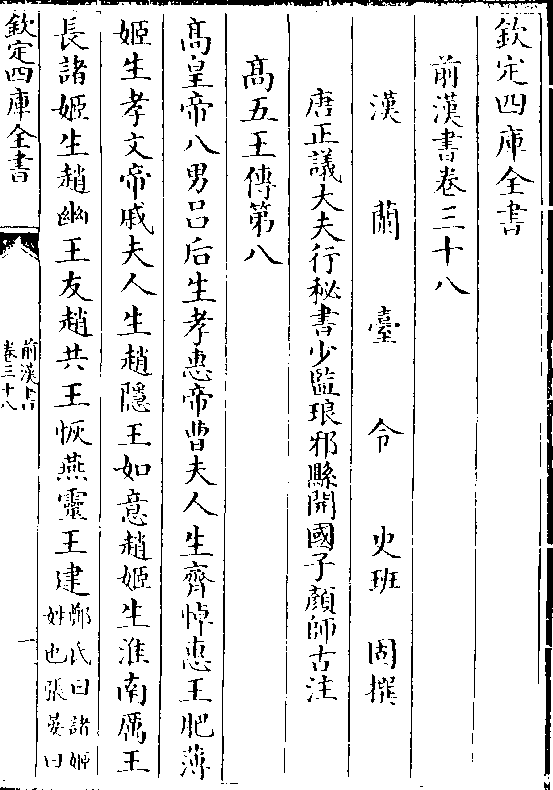 欽定四庫全書
前漢書卷三十八
漢蘭臺令史班固撰
唐正議大夫行秘書少監琅邪縣開國子顔師古注
髙五王傳第八
髙皇帝八男吕后生孝惠帝曹夫人生齊悼惠王肥薄
姬生孝文帝戚夫人生趙隱王如意趙姬生淮南厲王
長諸姬生趙幽王友趙共王恢燕靈王建鄭氏曰諸姬
姓也張晏曰
欽定四庫全書
前漢書
卷三十八
一